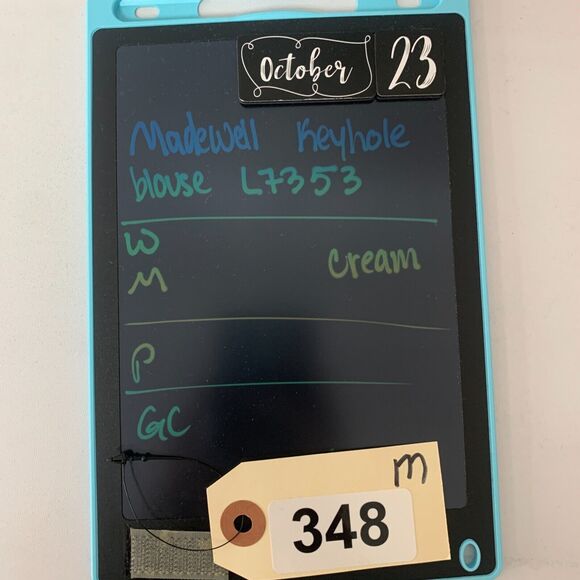 October 23
Madewell Keyhole
blouse L7353
W
M Cream
P
GC
m
348